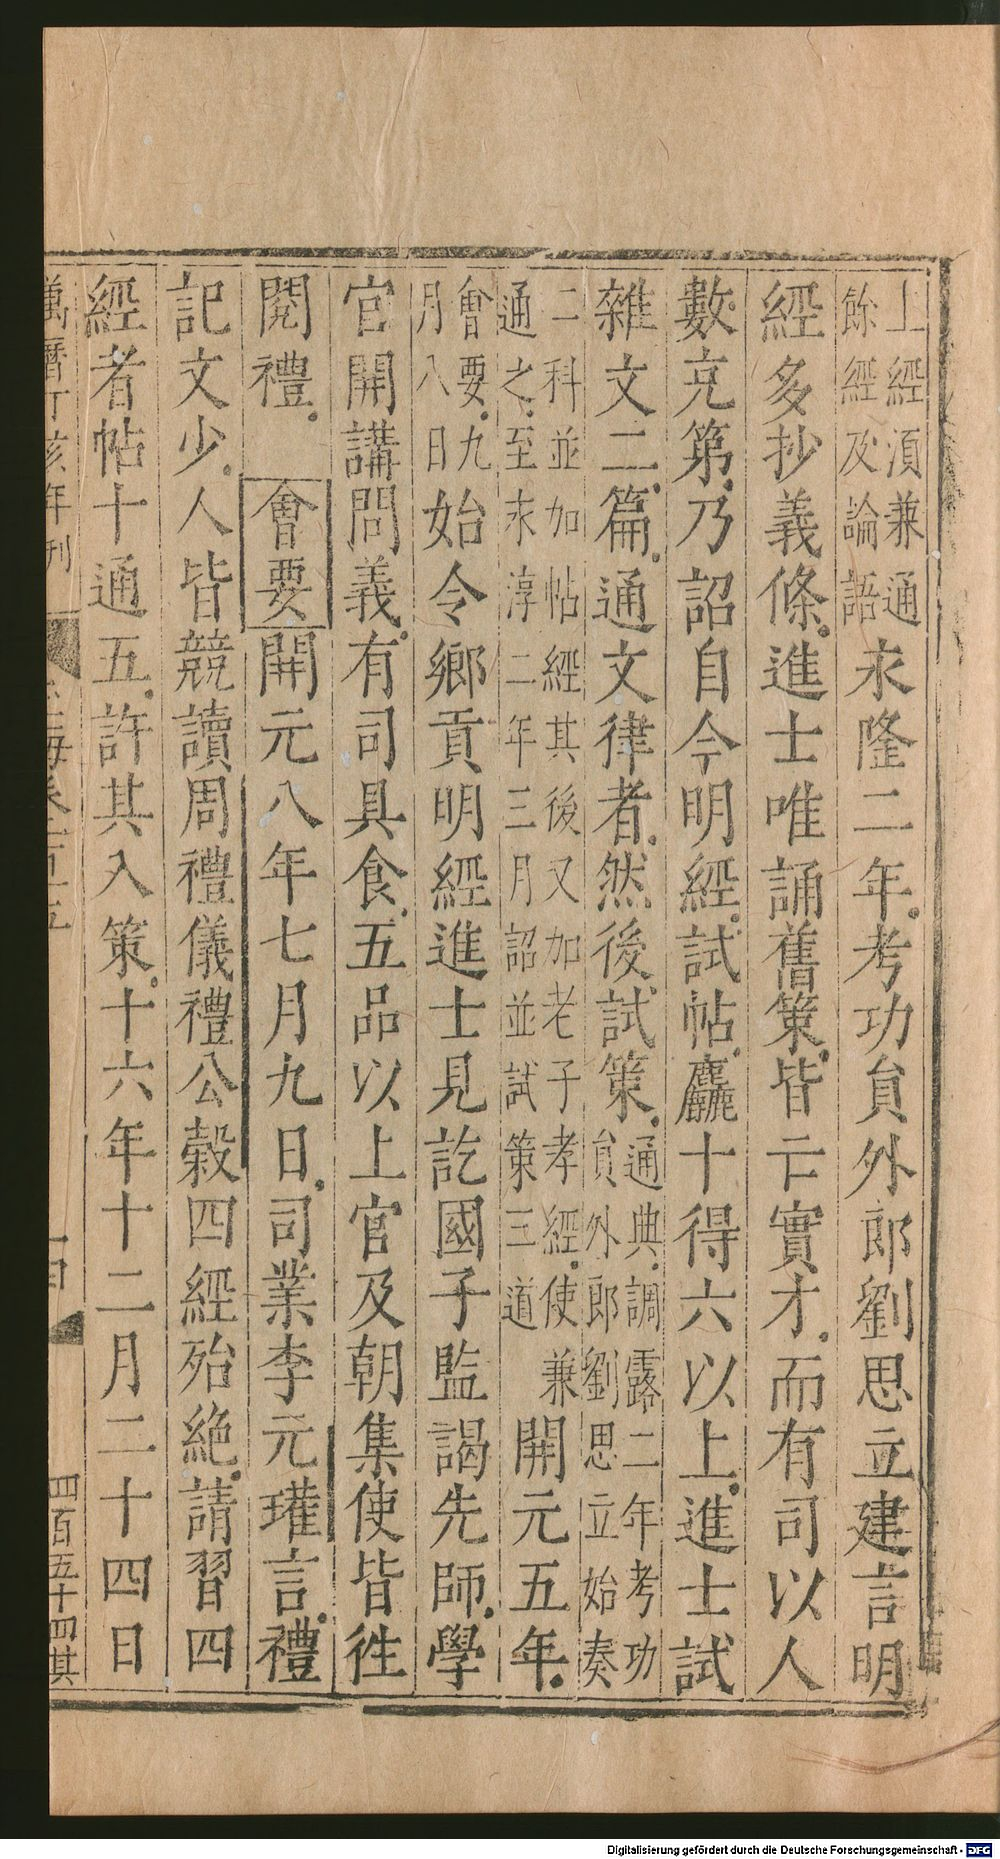 上經須兼通
餘經及論語
永隆二年考功貟外郎劉思立建言明
經多抄義條進士唯誦舊策皆亡實才而有司以人
數充第乃詔自今明經試帖麤十得六以上進士試
雜文二篇通文律者然後試策
通典調露二年考功
貟外郎劉思立始奏
二科並加帖經其後又加老子孝經使兼
通之至永淳二年三月詔並試策三道
開元五年
會要九
月八日
始令鄉貢明經進士見訖國子監謁先師學
官開講問義有司具食五品以上官及朝集使皆徃
閱禮
會要
開元八年七月九日司業李元璀言禮
記文少人皆競讀周禮儀禮公穀四經殆絶請習四
經者帖十通五許其入策十六年十二月二十四日
萬曆丁亥年刊
四百五十四其
Digitalisierung gefördert durch die Deutsche Forschungsgemeinschaft - DFG